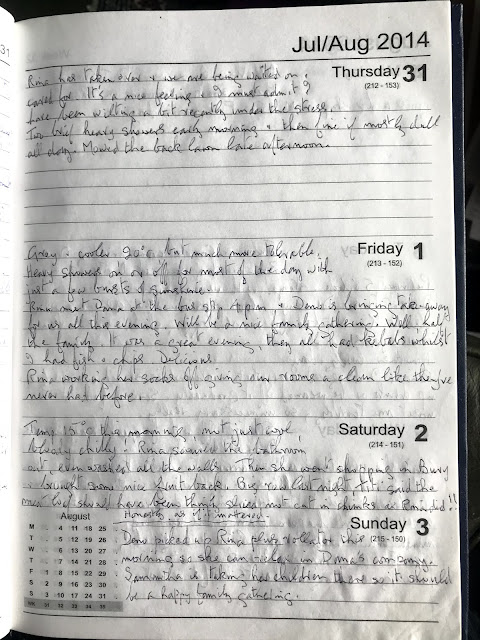 31
Jul/Aug 2014
Thursday 31
(212 - 153)
Rina has taken over + we are being waited on,
cared for. It's a nice feeling + I must admit I
have been wilting a bit recently under the stress.
Two brief heavy showers early morning + then fine if mostly dull
all day. Mowed the back lawn late afternoon.
Friday 1
(213 - 152)
Grey + cooler 20°c but much more tolerable.
Heavy showers on or off for most of the day with
just a few bursts of sunshine.
Rina met Dana at the bus stop 4pm + Deno is bringing take-away
for us all this evening. Will be a nice family gathering. Well, half
the family. It was a great evening, they all had kebabs whilst
I had fish + chips. Delicious
Rina working her socks off giving our rooms a clean like they've
never had before.
Saturday 2
(214 - 151)
Temp 15°c this morning, not just cool,
already chilly. Rina scoured the bathroom
out, even washed all the walls. Then she went shopping in Bury
+ brought some nice back. Big row last night, said the
meat should have been thinly sliced not cut in chunks as Rina did!!
Honestly as if it mattered.
Sunday 3
(215 - 150)
Deno picked up Rina plus rollator this
morning so she can relax in Dana's company.
Sammantha is taking her children there so it should
be a happy family gathering.
August
M 4 11 18 25
T 5 12 19 26
W 6 13 20 27
T 7 14 21 28
F 1 8 15 22 29
S 2 9 16 23 30
S 3 10 17 24 31
31 32 33 34 35